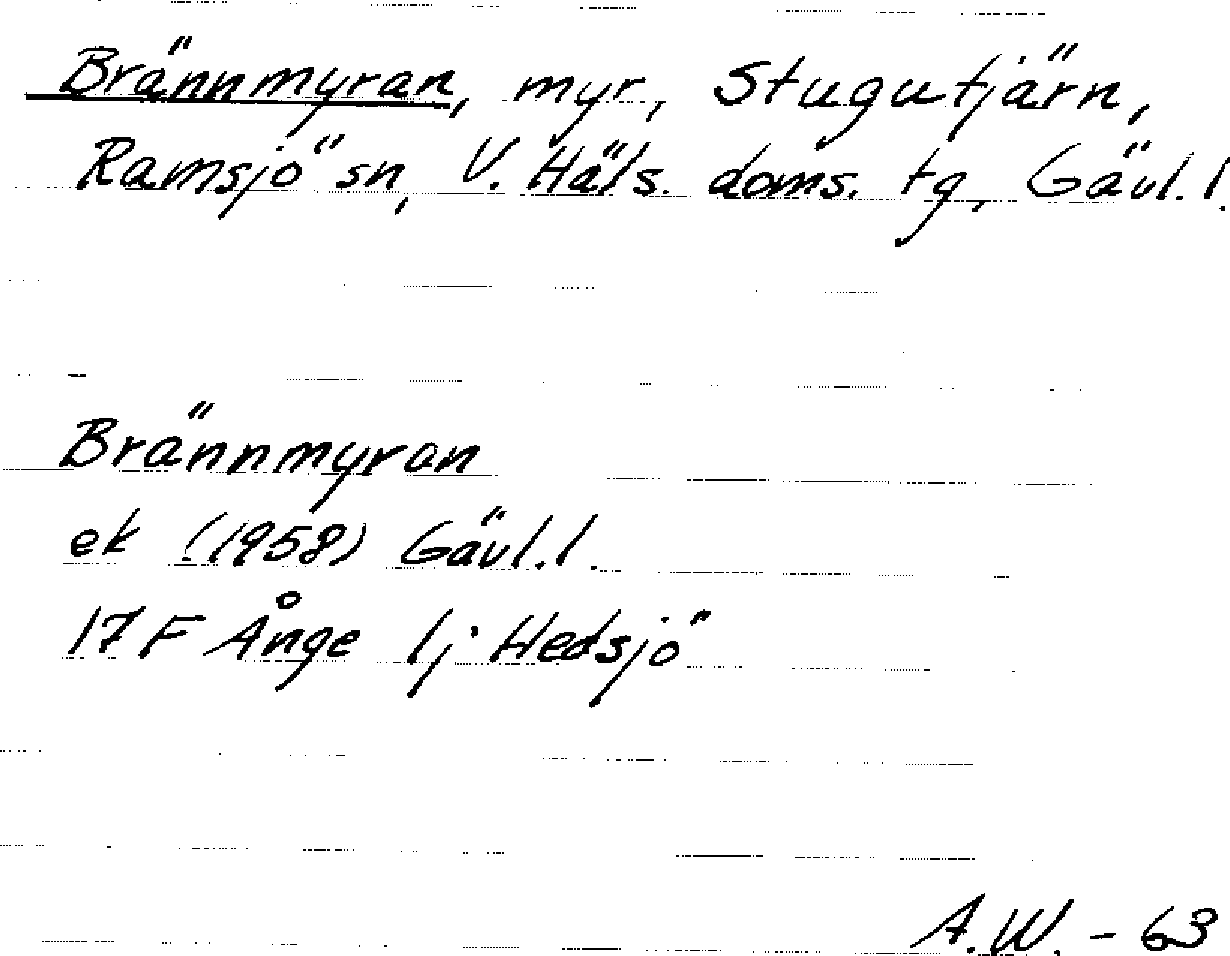 Brännmyran, myr, Stugutjärn,
Ramsjö sn, V. Häls. doms. tg, Gävl. l.
Brännmyran
ek (1958) Gävl. l.
17 F Ånge 1j Hedsjö
A.W. - 63